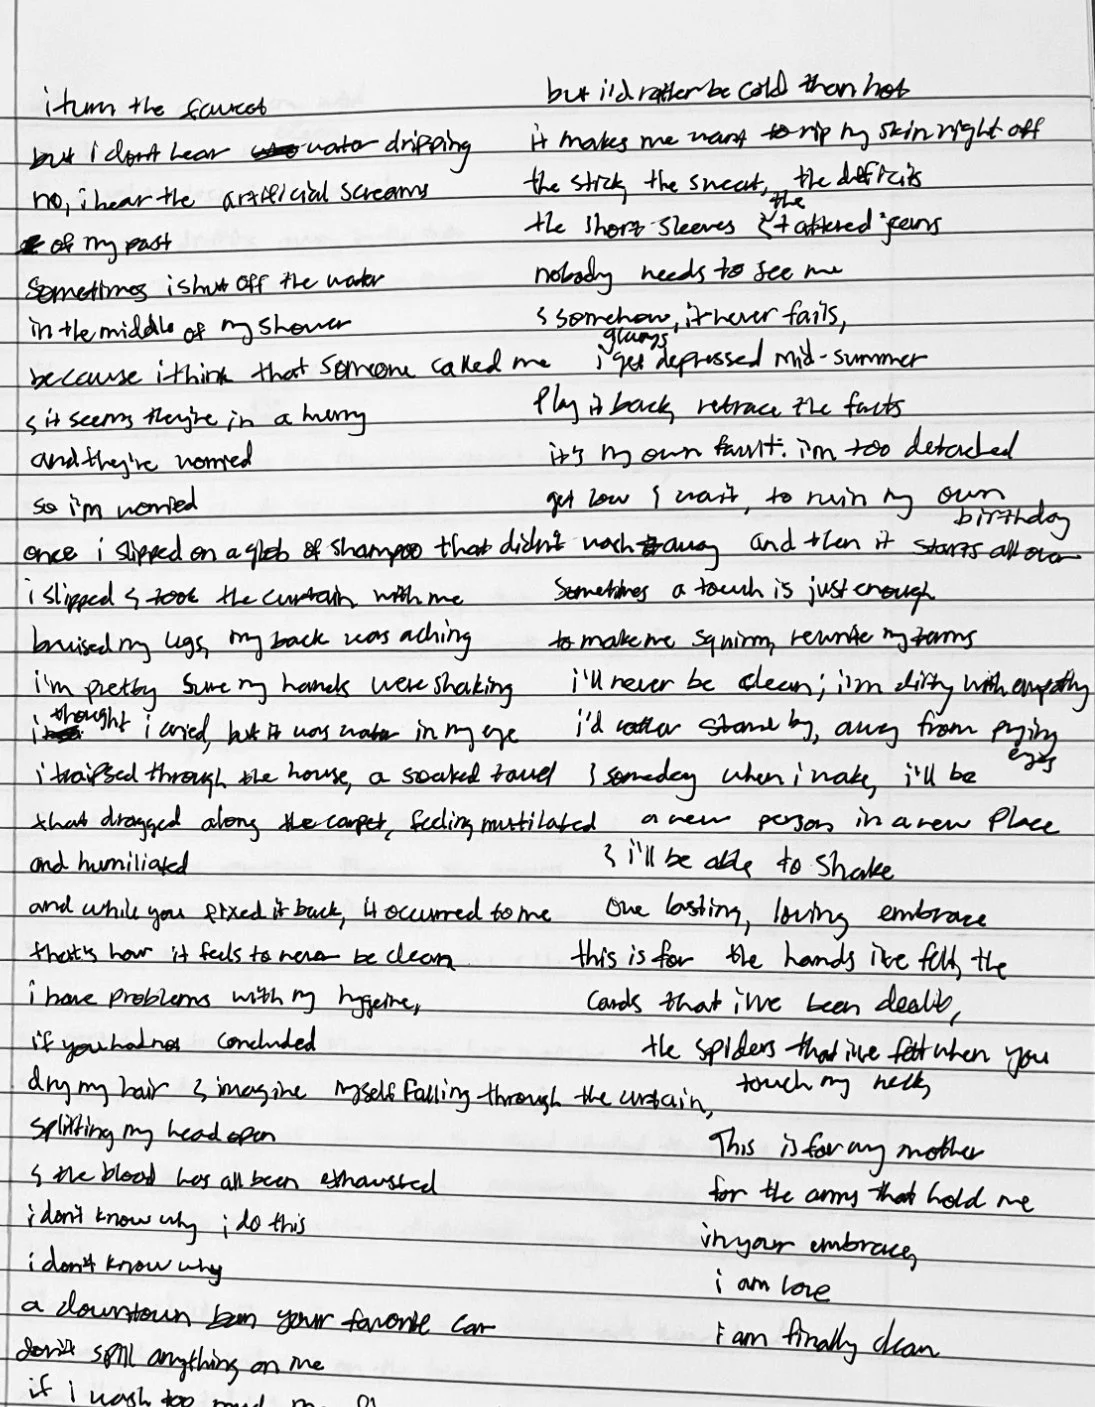 i turn the faucet
but i don't hear water dripping
no, i hear the artificial screams
of my past
sometimes i shut off the water
in the middle of my shower
because i think that someone called me
& it seems they're in a hurry
and they're worried
so i'm worried
once i slipped on a glob of shampoo that didn't wash away
i slipped & took the curtain with me
bruised my legs, my back was aching
i'm pretty sure my hands were shaking
i thought i cried, but it was water in my eye
i traipsed through the house, a soaked towel
that dragged along the carpet, feeling mutilated
and humiliated
and while you fixed it back, it occurred to me
that's how it feels to never be clean
i have problems with my hygeine,
if you had not concluded
dry my hair & imagine myself falling through the curtain,
splitting my head open
& the blood has all been exhausted
i don't know why i do this
i don't know why
a downtown your favorite car
don't spill anything on me
if i wash too
but i'd rather be cold than hot
it makes me want to rip my skin right off
the stick, the sweat, the deficits
the short sleeves & the tattered jeans
nobody needs to see me
& somehow, it never fails,
i always get depressed mid-summer
play it back, retrace the facts
it's my own fault: i'm too detached
get low & wait, to ruin my own
birthday
and then it starts all over
sometimes a touch is just enough
to make me squirm, rewrite my terms
i'll never be clean; i'm dirty with empathy
i'd rather stand by, away from prying
eyes
& someday when i wake, i'll be
a new person in a new place
& i'll be able to shake
one lasting, loving embrace
this is for the hands i've felt, the
cards that i've been dealt,
the spiders that i've felt when you
touch my neck,
This is for my mother
for the arms that hold me
in your embrace,
i am love
i am finally clean